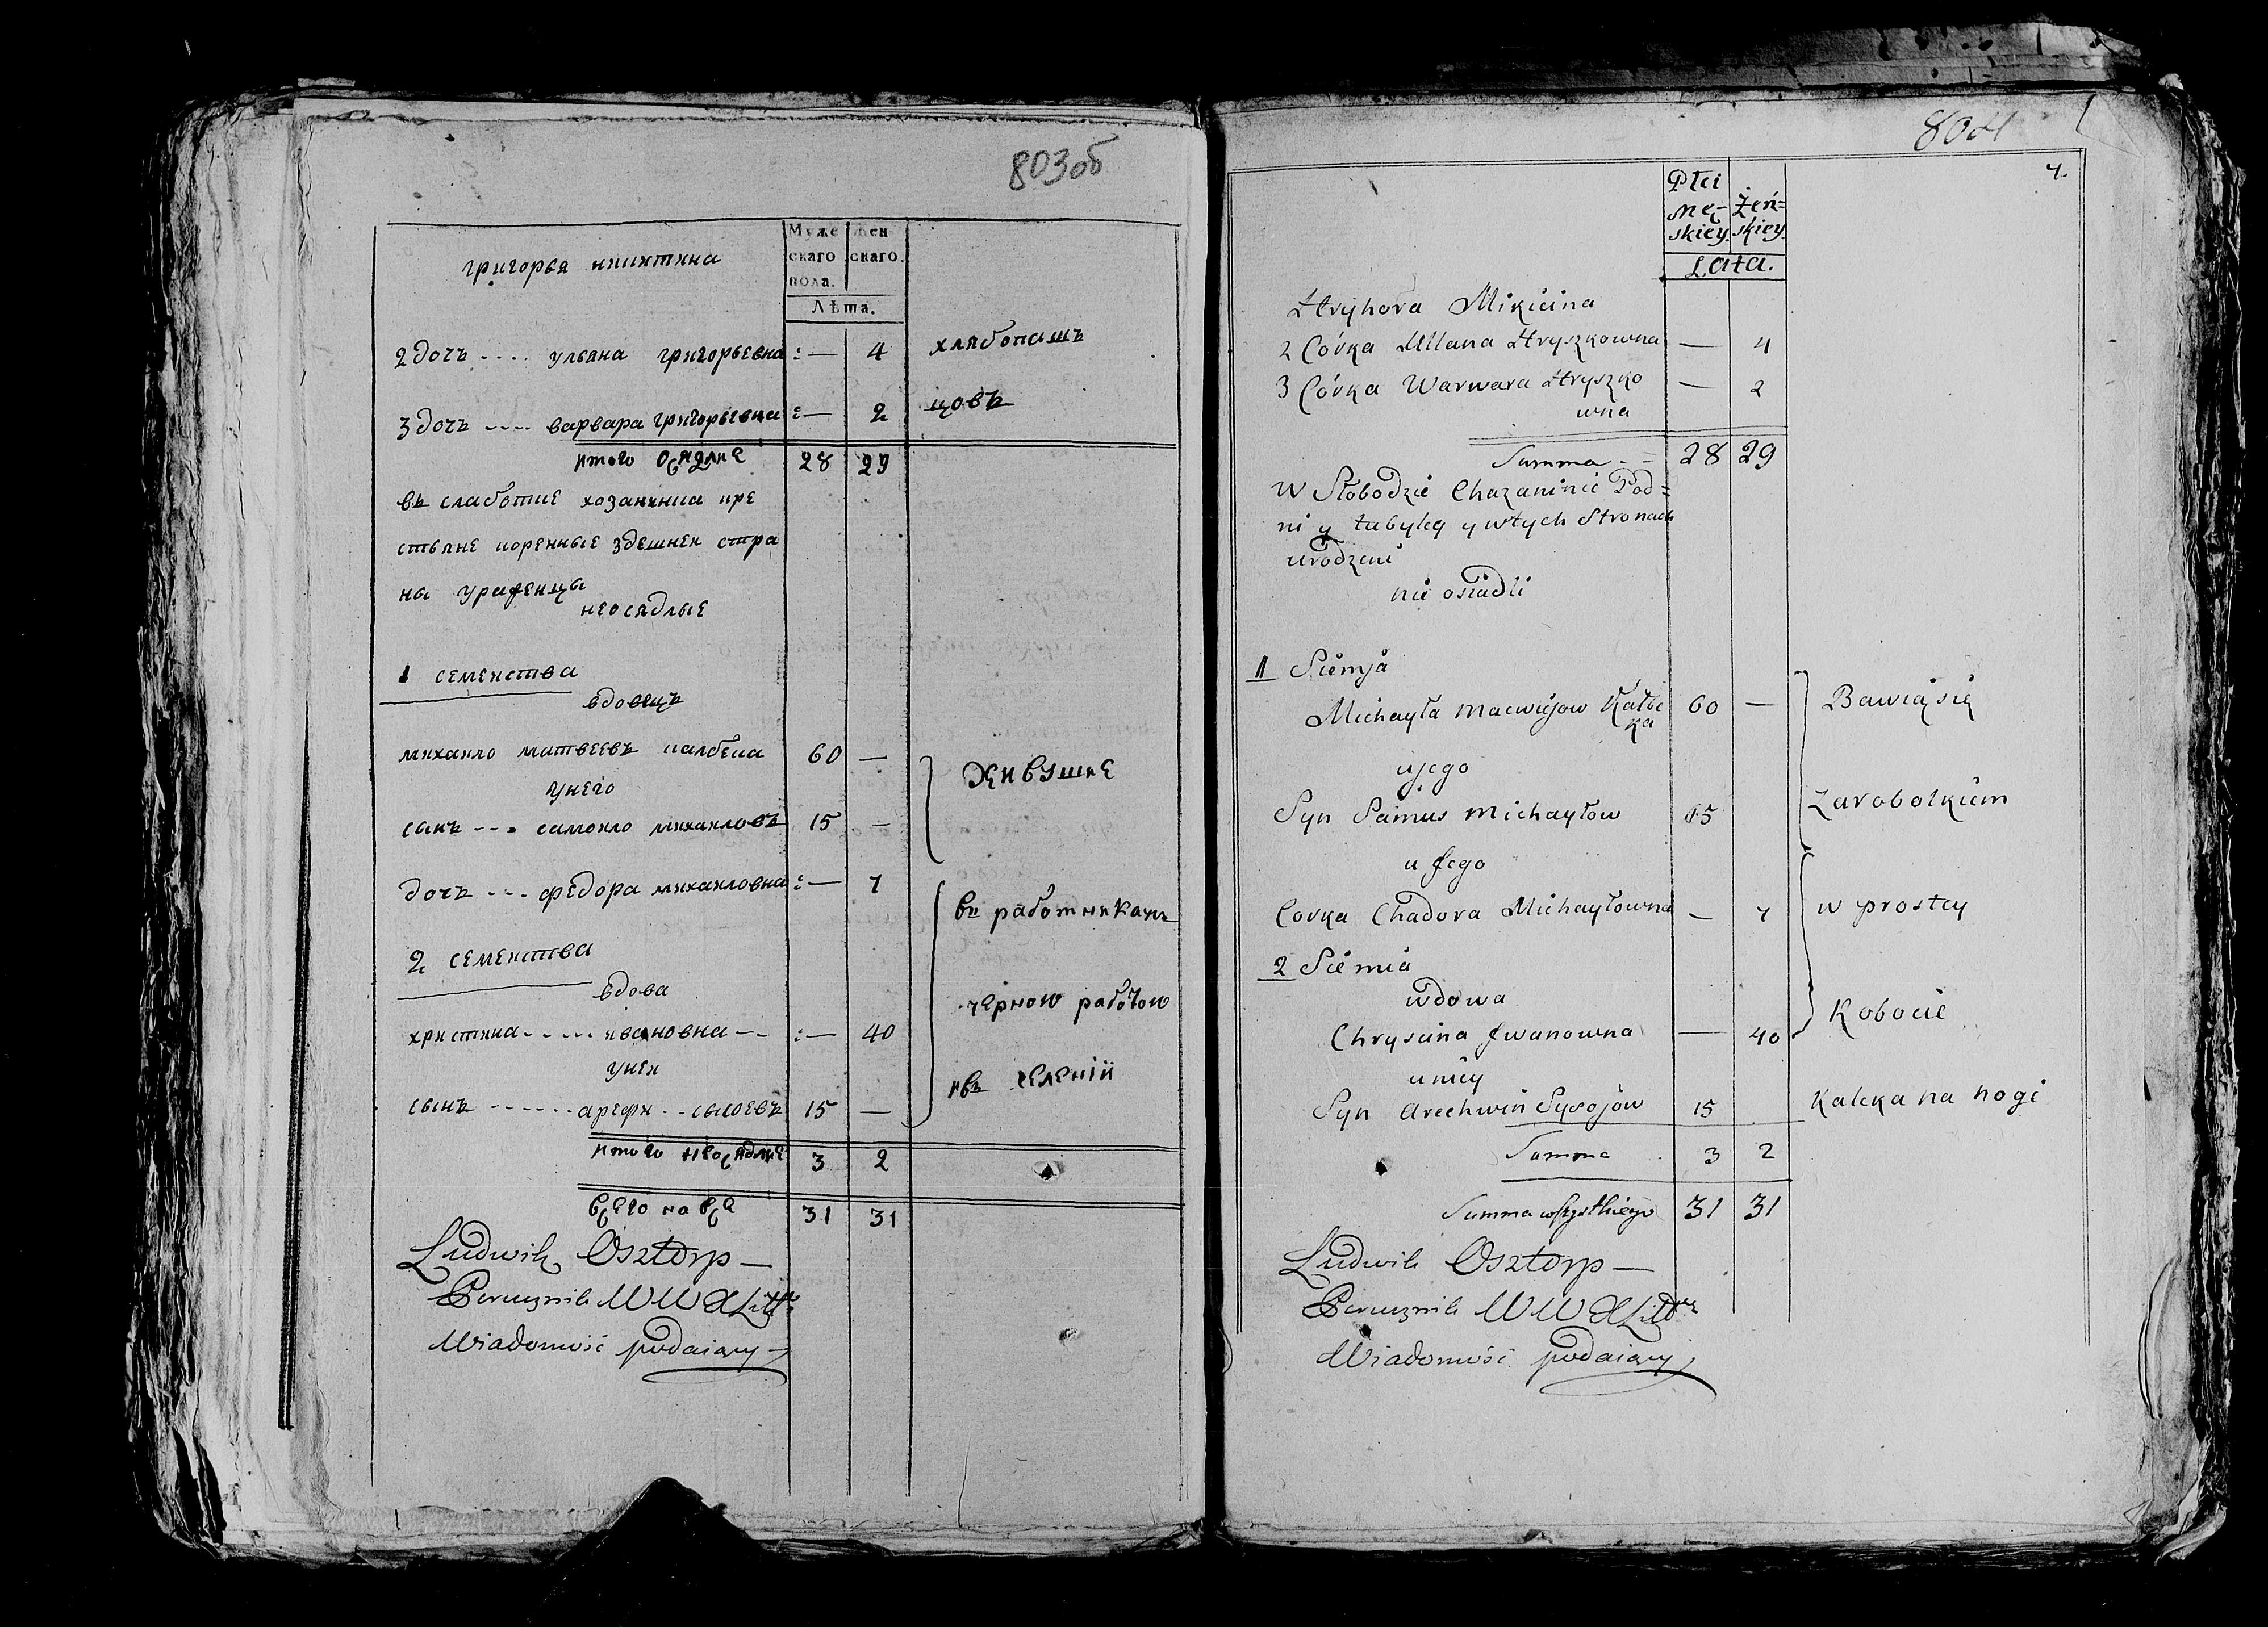 803об
григорья никитина
Муже
скаго
пола.
Жен
скаго.
Лѣта.
2 дочь .... ульяна григорьевна :— 4 хлябопаш
3 дочь .... варвара григорьевна :— 2 цовъ
итого осядлые 28 29
въ слаботие хозанинка кре
стьяне коренные здешней стра
ны ураженцы
неосядлые
1 семейства
вдовецъ
михаило матвеевъ калбека 60 —
унего
сынъ --- самоило михаиловъ 15 —
Живушие
дочь --- федора михаиловна :— 7
въ работникахъ
2 семейства
вдова
черною работою
христина ..... ивановна -- :— 40
уней
ивъ селении
сынъ ...... арефи .. сысоевъ 15 —
итого неосядлые 3 2
всего на все 31 31
Ludwik Osztorp —
Porucznik W W X Litt:
Wiadomość podaiący
804
7.
Płci
Mę-
skiey.
Żeń=
skiey.
Lata.
Hryhora Mikicina
2 Córka Ullana Hryszkowna — 4
3 Córka Warwara Hryszko — 2
wna
Summa - - 28 29
W Słobodzie Chazaninie Pod=
ni y tubylcy y wtych Stronach
urodzeni
nie osiadli
1 Siemja
Michayła Macwiejow Kałbe 60 — Bawią się
ka
u jego
Syn Samus Michayłow 15 Zarobotkiem
u Jego
Corka Chadora Michayłowna — 7 w prostey
2 Siemia
wdowa
Robocie
Chryscina Jwanowna — 40
u niey
Syn Arechwiń Sysojow 15 Kaleka na nogi
Summa 3 2
Summa wszystkiego 31 31
Ludwik Osztorp —
Porucznik W W X Litt:
Wiadomość podaiący